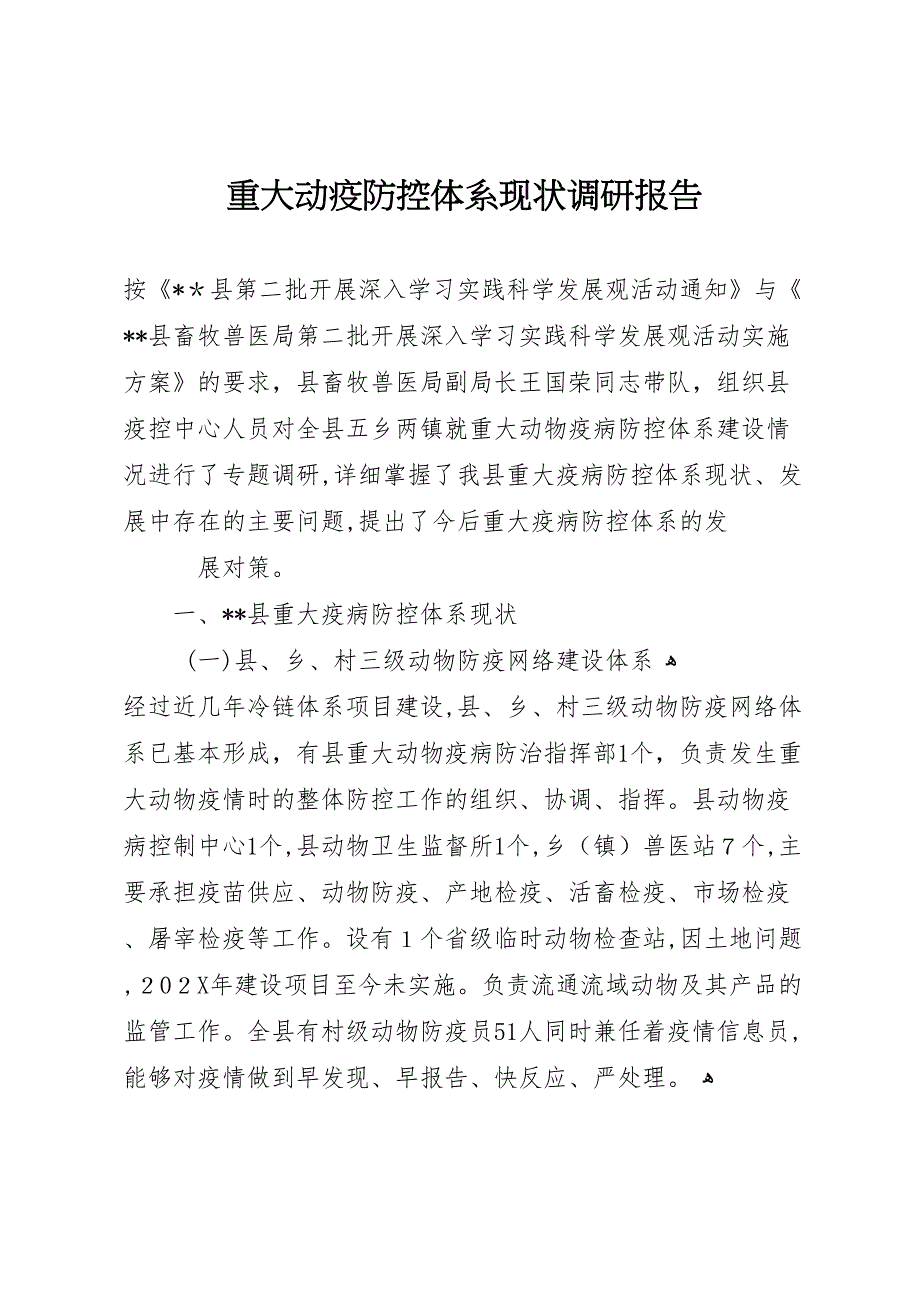 重大动疫防控体系现状调研报告
按《*＊县第二批开展深入学习实践科学发展观活动通知》与《
**县畜牧兽医局第二批开展深入学习实践科学发展观活动实施
方案》的要求，县畜牧兽医局副局长王国荣同志带队，组织县
疫控中心人员对全县五乡两镇就重大动物疫病防控体系建设情
况进行了专题调研,详细掌握了我县重大疫病防控体系现状、发
展中存在的主要问题,提出了今后重大疫病防控体系的发
展对策。
一、**县重大疫病防控体系现状
(一)县、乡、村三级动物防疫网络建设体系 ﻫ
经过近几年冷链体系项目建设,县、乡、村三级动物防疫网络体
系已基本形成，有县重大动物疫病防治指挥部1个，负责发生重
大动物疫情时的整体防控工作的组织、协调、指挥。县动物疫
病控制中心1个,县动物卫生监督所1个,乡（镇）兽医站７个,主
要承担疫苗供应、动物防疫、产地检疫、活畜检疫、市场检疫
、屠宰检疫等工作。设有１个省级临时动物检查站,因土地问题
,２０２X年建设项目至今未实施。负责流通流域动物及其产品的
监管工作。全县有村级动物防疫员51人同时兼任着疫情信息员,
能够对疫情做到早发现、早报告、快反应、严处理。 ﻫ